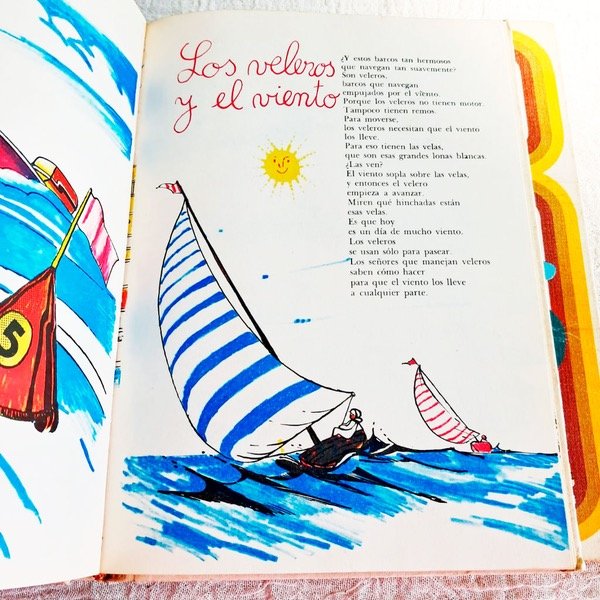 Los veleros
y el viento
¿Y estos barcos tan hermosos
que navegan tan suavemente?
Son veleros,
barcos que navegan
empujados por el viento.
Porque los veleros no tienen motor.
Tampoco tienen remos.
Para moverse,
los veleros necesitan que el viento
los lleve.
Para eso tienen las velas,
que son esas grandes lonas blancas.
¿Las ven?
El viento sopla sobre las velas,
y entonces el velero
empieza a avanzar.
Miren qué hinchadas están
esas velas.
Es que hoy
es un día de mucho viento.
Los veleros
se usan sólo para pasear.
Los señores que manejan veleros
saben cómo hacer
para que el viento los lleve
a cualquier parte.
5